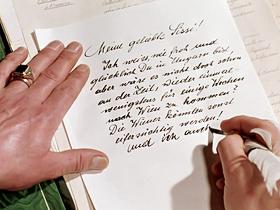 Meine geliebte Sissi!
Ich weiss, wie froh und
glücklich Du in Ungarn bist,
aber wäre es nicht doch schon
an der Zeit, wieder einmal
wenigstens für einige Wochen
nach Wien zu kommen?
Die Wiener könnten sonst
eifersüchtig werden
und ich auch